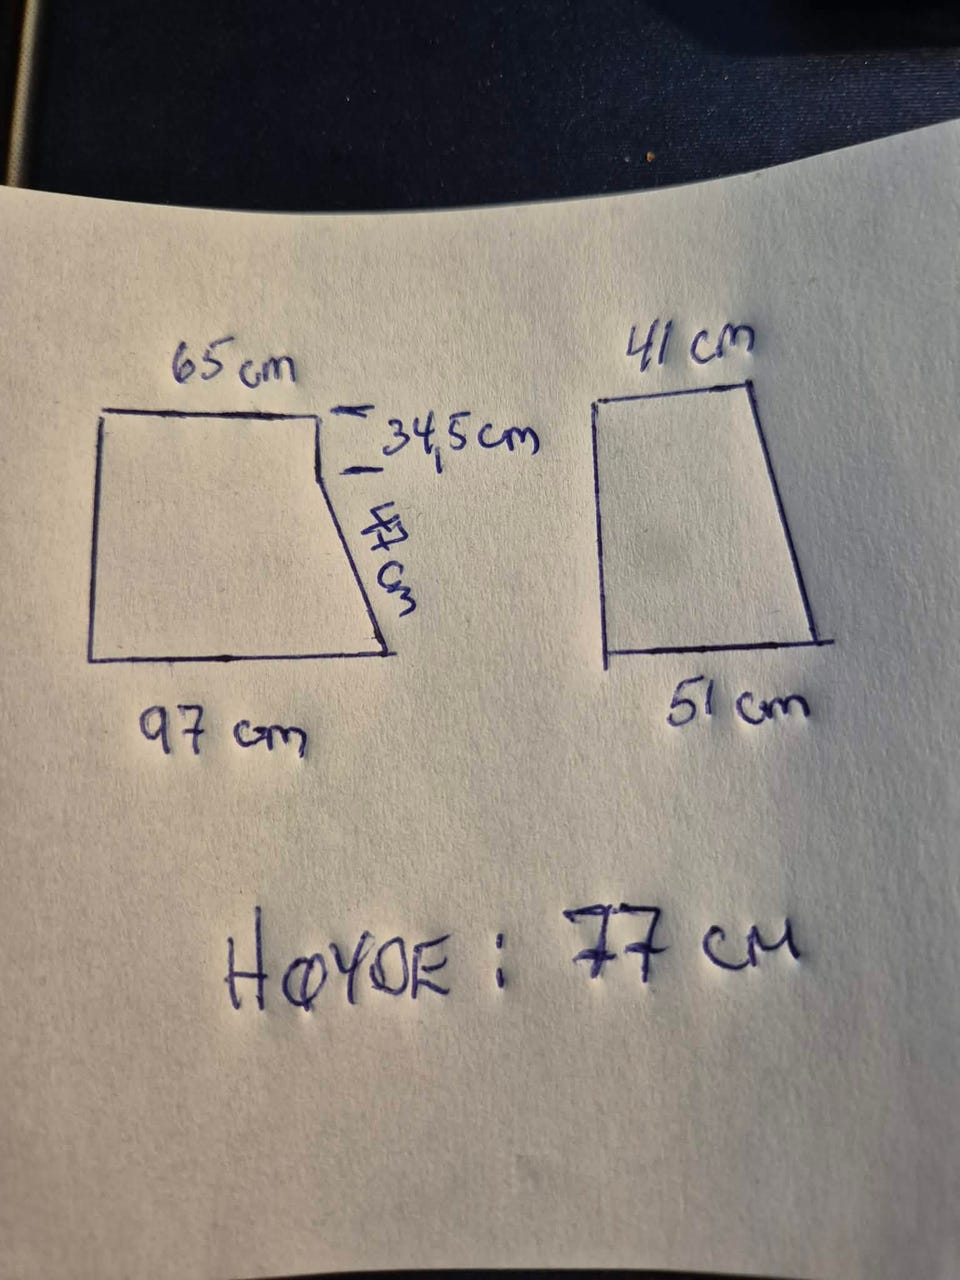 65 cm
34,5 cm
47 cm
97 cm
41 cm
51 cm
HØYDE : 77 CM